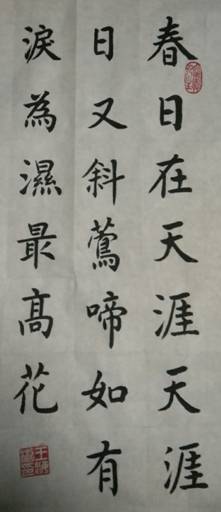 春日在天涯天涯
日又斜鶯啼如有
淚為濕最高花